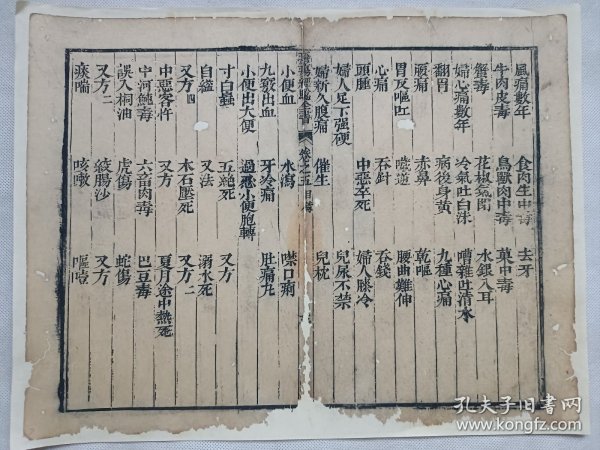 風痛數年 食肉生中毒 去牙
牛肉皮毒 鳥獸肉中毒 菓中毒
蟹毒 花椒氣閉 水銀入耳
婦心痛數年 冷氣吐白沫 嘈雜吐清水
翻胃 病後身黃 九種心痛
腰痛 赤鼻 乾嘔
胃反嘔吐 腰曲難伸
心痛 吞針 吞錢
頭腫 中惡卒死 婦人膝冷
婦人足下強硬 兒尿不禁
婦新久腹痛 催生 兒枕
全書 卷之五目錄
小便血 水瀉 噤口痢
九竅出血 牙冷痛 肚痛九
小便出大便 過忍小便胞轉
寸白蟲 五絕死 又方
自縊 又法 溺水死
又方四 木石壓死 又方二
中惡客忤 又方 夏月途中熱死
中河魨毒 六畜肉毒 巴豆毒
誤入桐油 虎傷 蛇傷
又方二 絞腸沙 又方
痰喘 咳嗽 嘔噎
孔夫子旧书网
www.kongfz.com